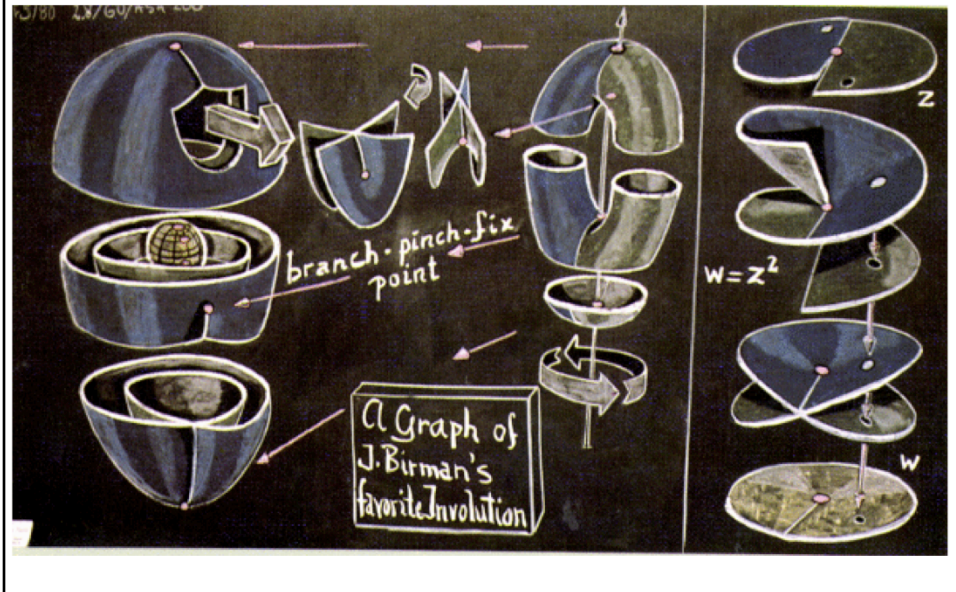 branch·pinch·fix
point
A Graph of
J. Birman's
favorite Involution
Z
W=Z²
W